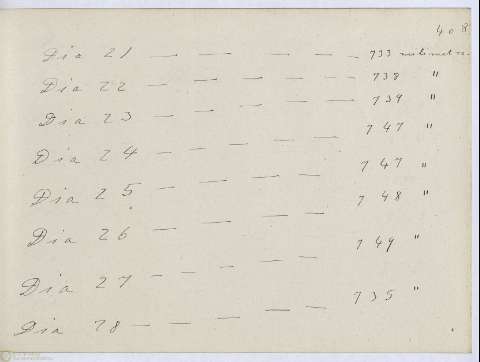 408
Dia 21 — — — — — 733 milimetro.
Dia 22 — — — — — 738 "
Dia 23 — — — — — 739 "
Dia 24 — — — — — 747 "
Dia 25 — — — — — 747 "
Dia 26 — — — — — 748 "
Dia 27 — — — — — 749 "
Dia 28 — — — — — 735 "